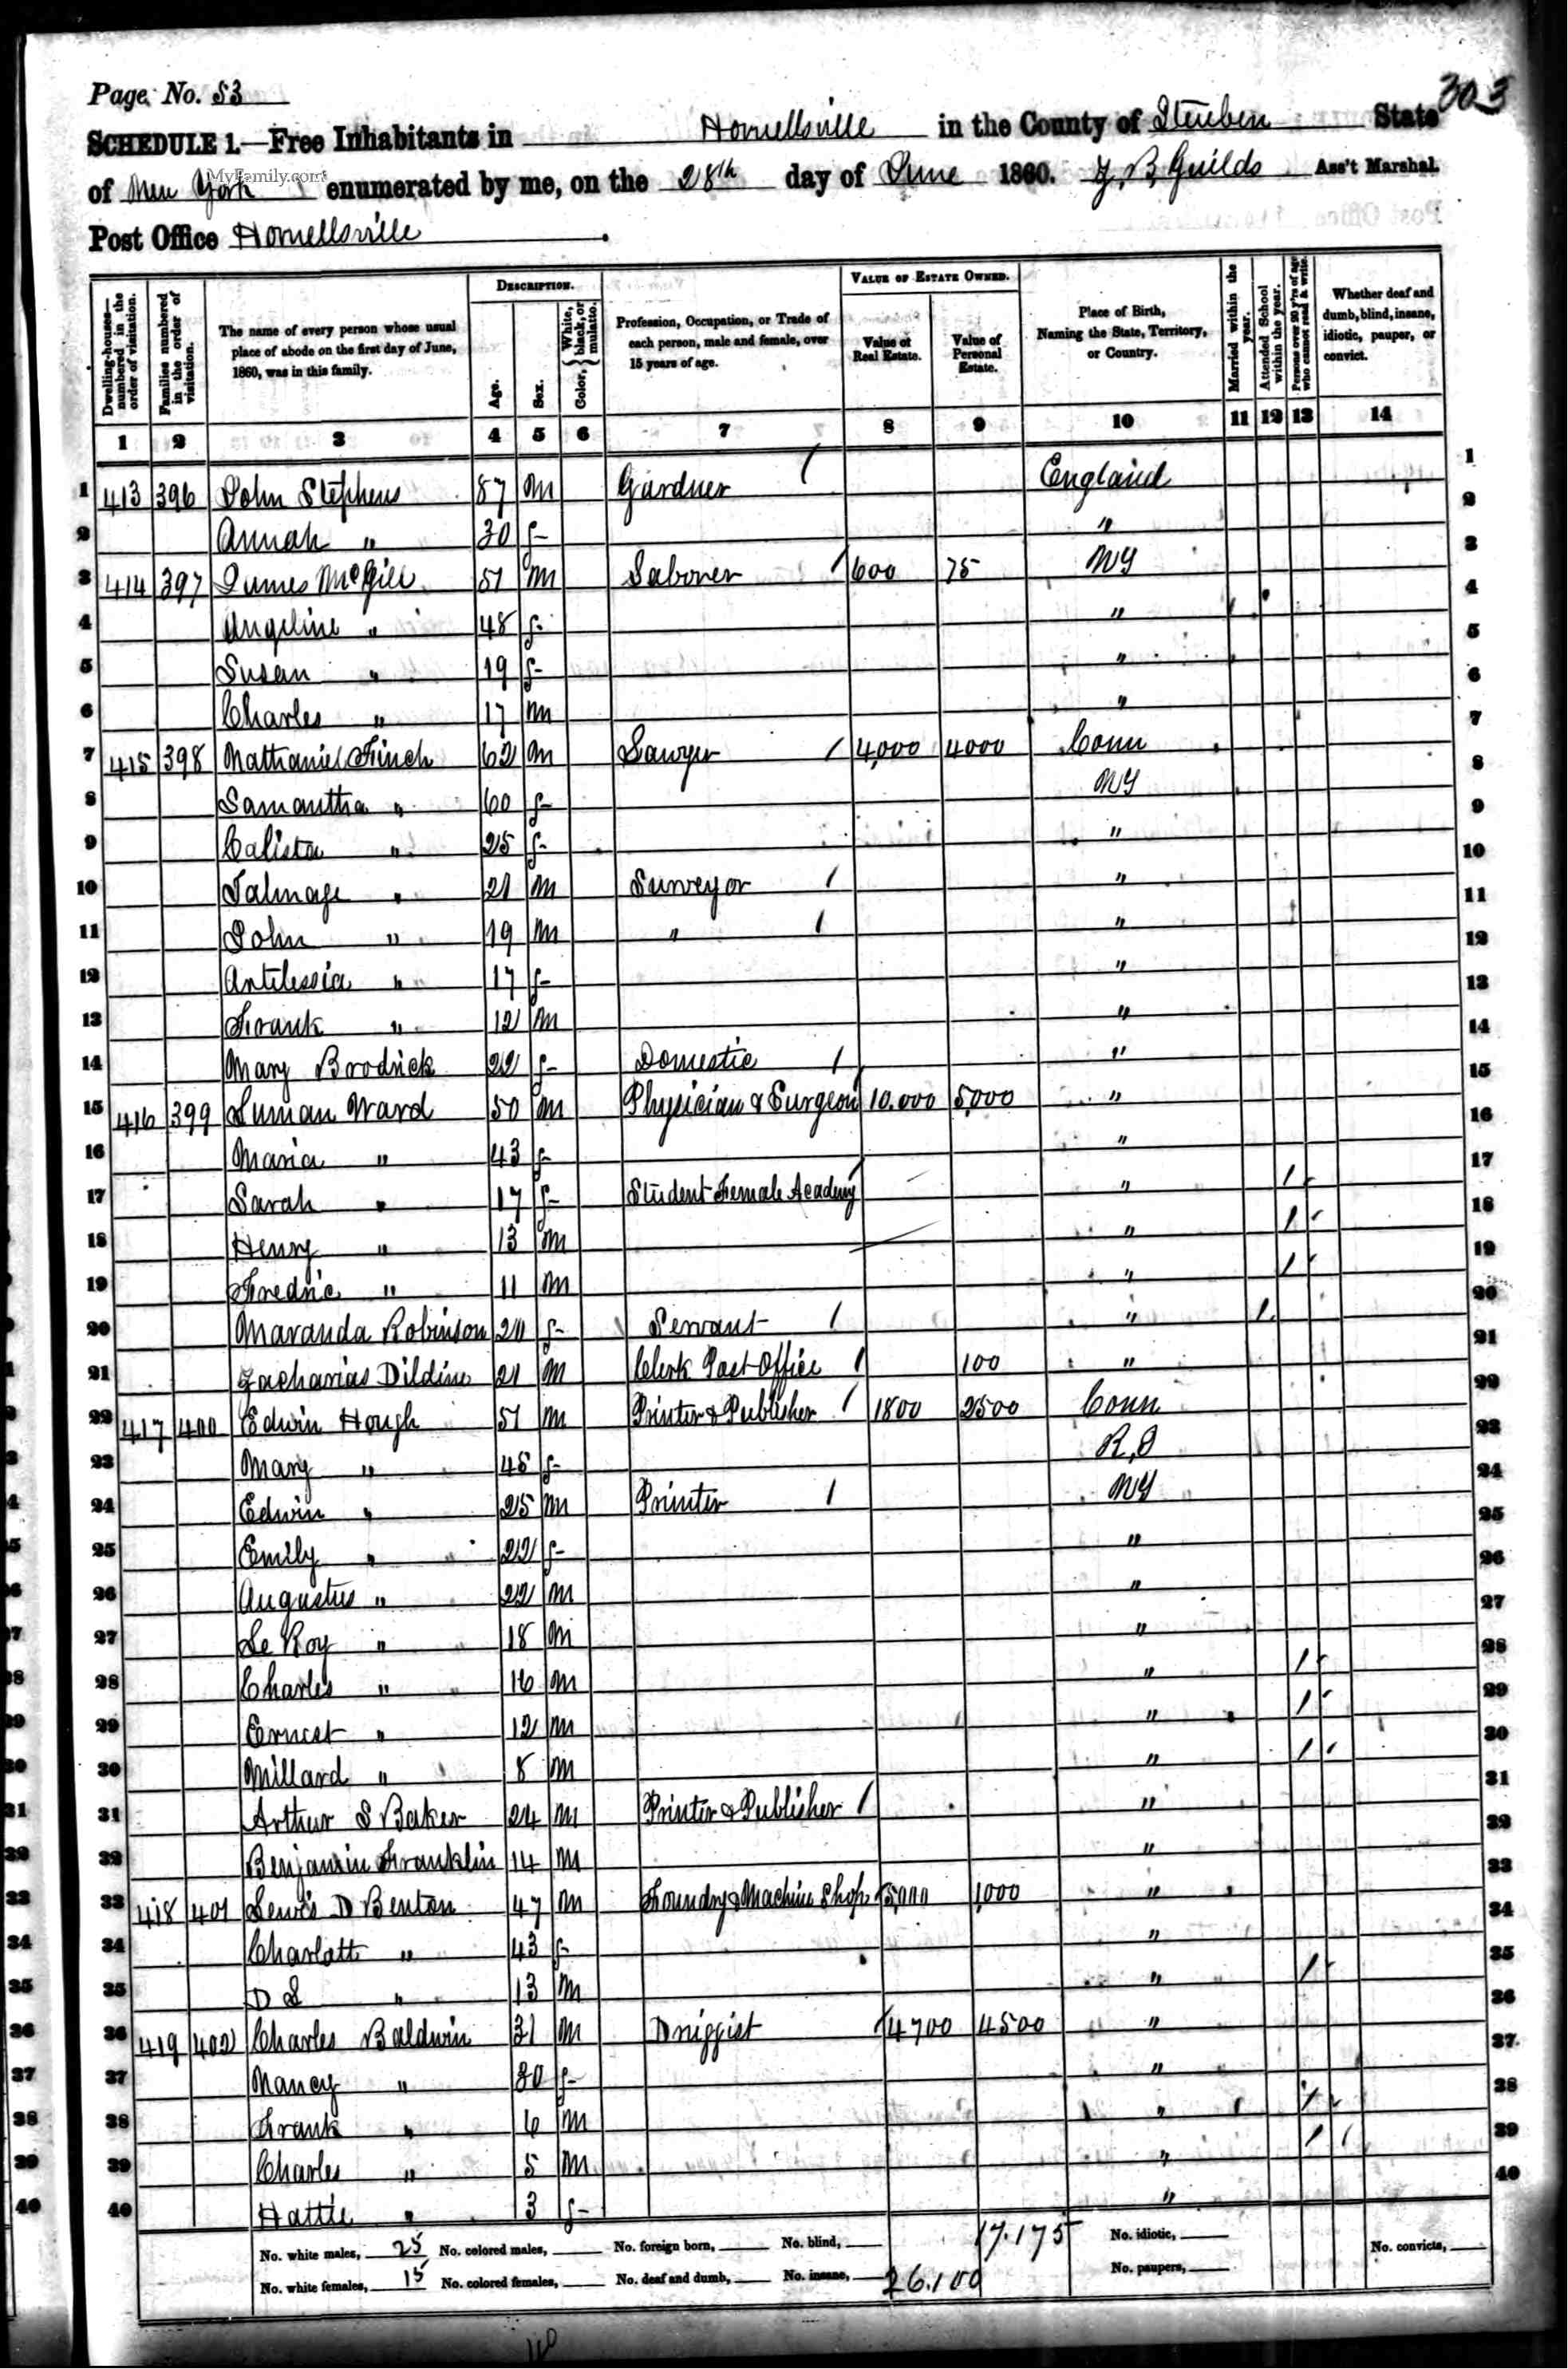 Page No. 53
303
SCHEDULE 1.—Free Inhabitants in Hornellsville in the County of Steuben State
of New York enumerated by me, on the 28th day of June 1860. Z. B. Guilds Ass't Marshal.
MyFamily.com
Post Office Hornellsville.
Dwelling-houses—numbered in the order of visitation.
Families numbered in the order of visitation.
The name of every person whose usual place of abode on the first day of June, 1860, was in this family.
DESCRIPTION.
Age.
Sex.
Color, White, black, or mulatto.
Profession, Occupation, or Trade of each person, male and female, over 15 years of age.
VALUE OF ESTATE OWNED.
Value of Real Estate.
Value of Personal Estate.
Place of Birth, Naming the State, Territory, or Country.
Married within the year.
Attended School within the year.
Persons over 20 y'rs of age who cannot read & write.
Whether deaf and dumb, blind, insane, idiotic, pauper, or convict.
1 2 3 4 5 6 7 8 9 10 11 12 13 14
1 413 396 John Stephens 37 m Gardner / England 1
2 Annah " 30 f " 2
3 414 397 James McGill 51 m Laborer / 600 75 NY 3
4 Angeline " 48 f " 4
5 Susan " 19 f " 5
6 Charles " 17 m " 6
7 415 398 Nathaniel Finch 62 m Lawyer / 4,000 4000 Conn 7
8 Samantha " 60 f NY 8
9 Calista " 25 f " 9
10 Talmage " 21 m Surveyor / " 10
11 John " 19 m " / " 11
12 Antilessia " 17 f " 12
13 Frank " 12 m " 13
14 Mary Brodrick 22 f Domestic / " 14
15 416 399 Luman Ward 50 m Physician & Surgeon 10.000 5,000 " 15
16 Maria " 43 f " 16
17 Sarah " 17 f Student Female Academy " / 17
18 Henry " 13 m " / 18
19 Fredric " 11 m " / 19
20 Maranda Robinson 20 f Servant / " / 20
21 Zacharias Dildine 21 m Clerk Post Office / 100 " 21
22 417 400 Edwin Hough 51 m Printer & Publisher / 1800 2500 Conn 22
23 Mary " 48 f R.I 23
24 Edwin " 25 m Printer / NY 24
25 Emily " 22 f " 25
26 Augustus " 22 m " 26
27 Le Roy " 18 m " 27
28 Charles " 16 m " / 28
29 Ernest " 12 m " / 29
30 Millard " 8 m " / 30
31 Arthur S Baker 24 m Printer & Publisher / " 31
32 Benjamin Franklin 14 m " 32
33 418 401 Lewis D Benton 47 m Foundry & Machine Shop 5,000 1,000 " 33
34 Charlott " 43 f " 34
35 D S " 13 m " / 35
36 419 402 Charles Baldwin 31 m Druggist / 4700 4500 " 36
37 Nancy " 30 f " 37
38 Frank " 6 m " / 38
39 Charles " 5 m " / 39
40 Hattie " 3 f " 40
No. white males, 25 No. colored males, No. foreign born, No. blind, 17.175 No. idiotic, No. convicts,
No. white females, 15 No. colored females, No. deaf and dumb, No. insane, 26.100 No. paupers,